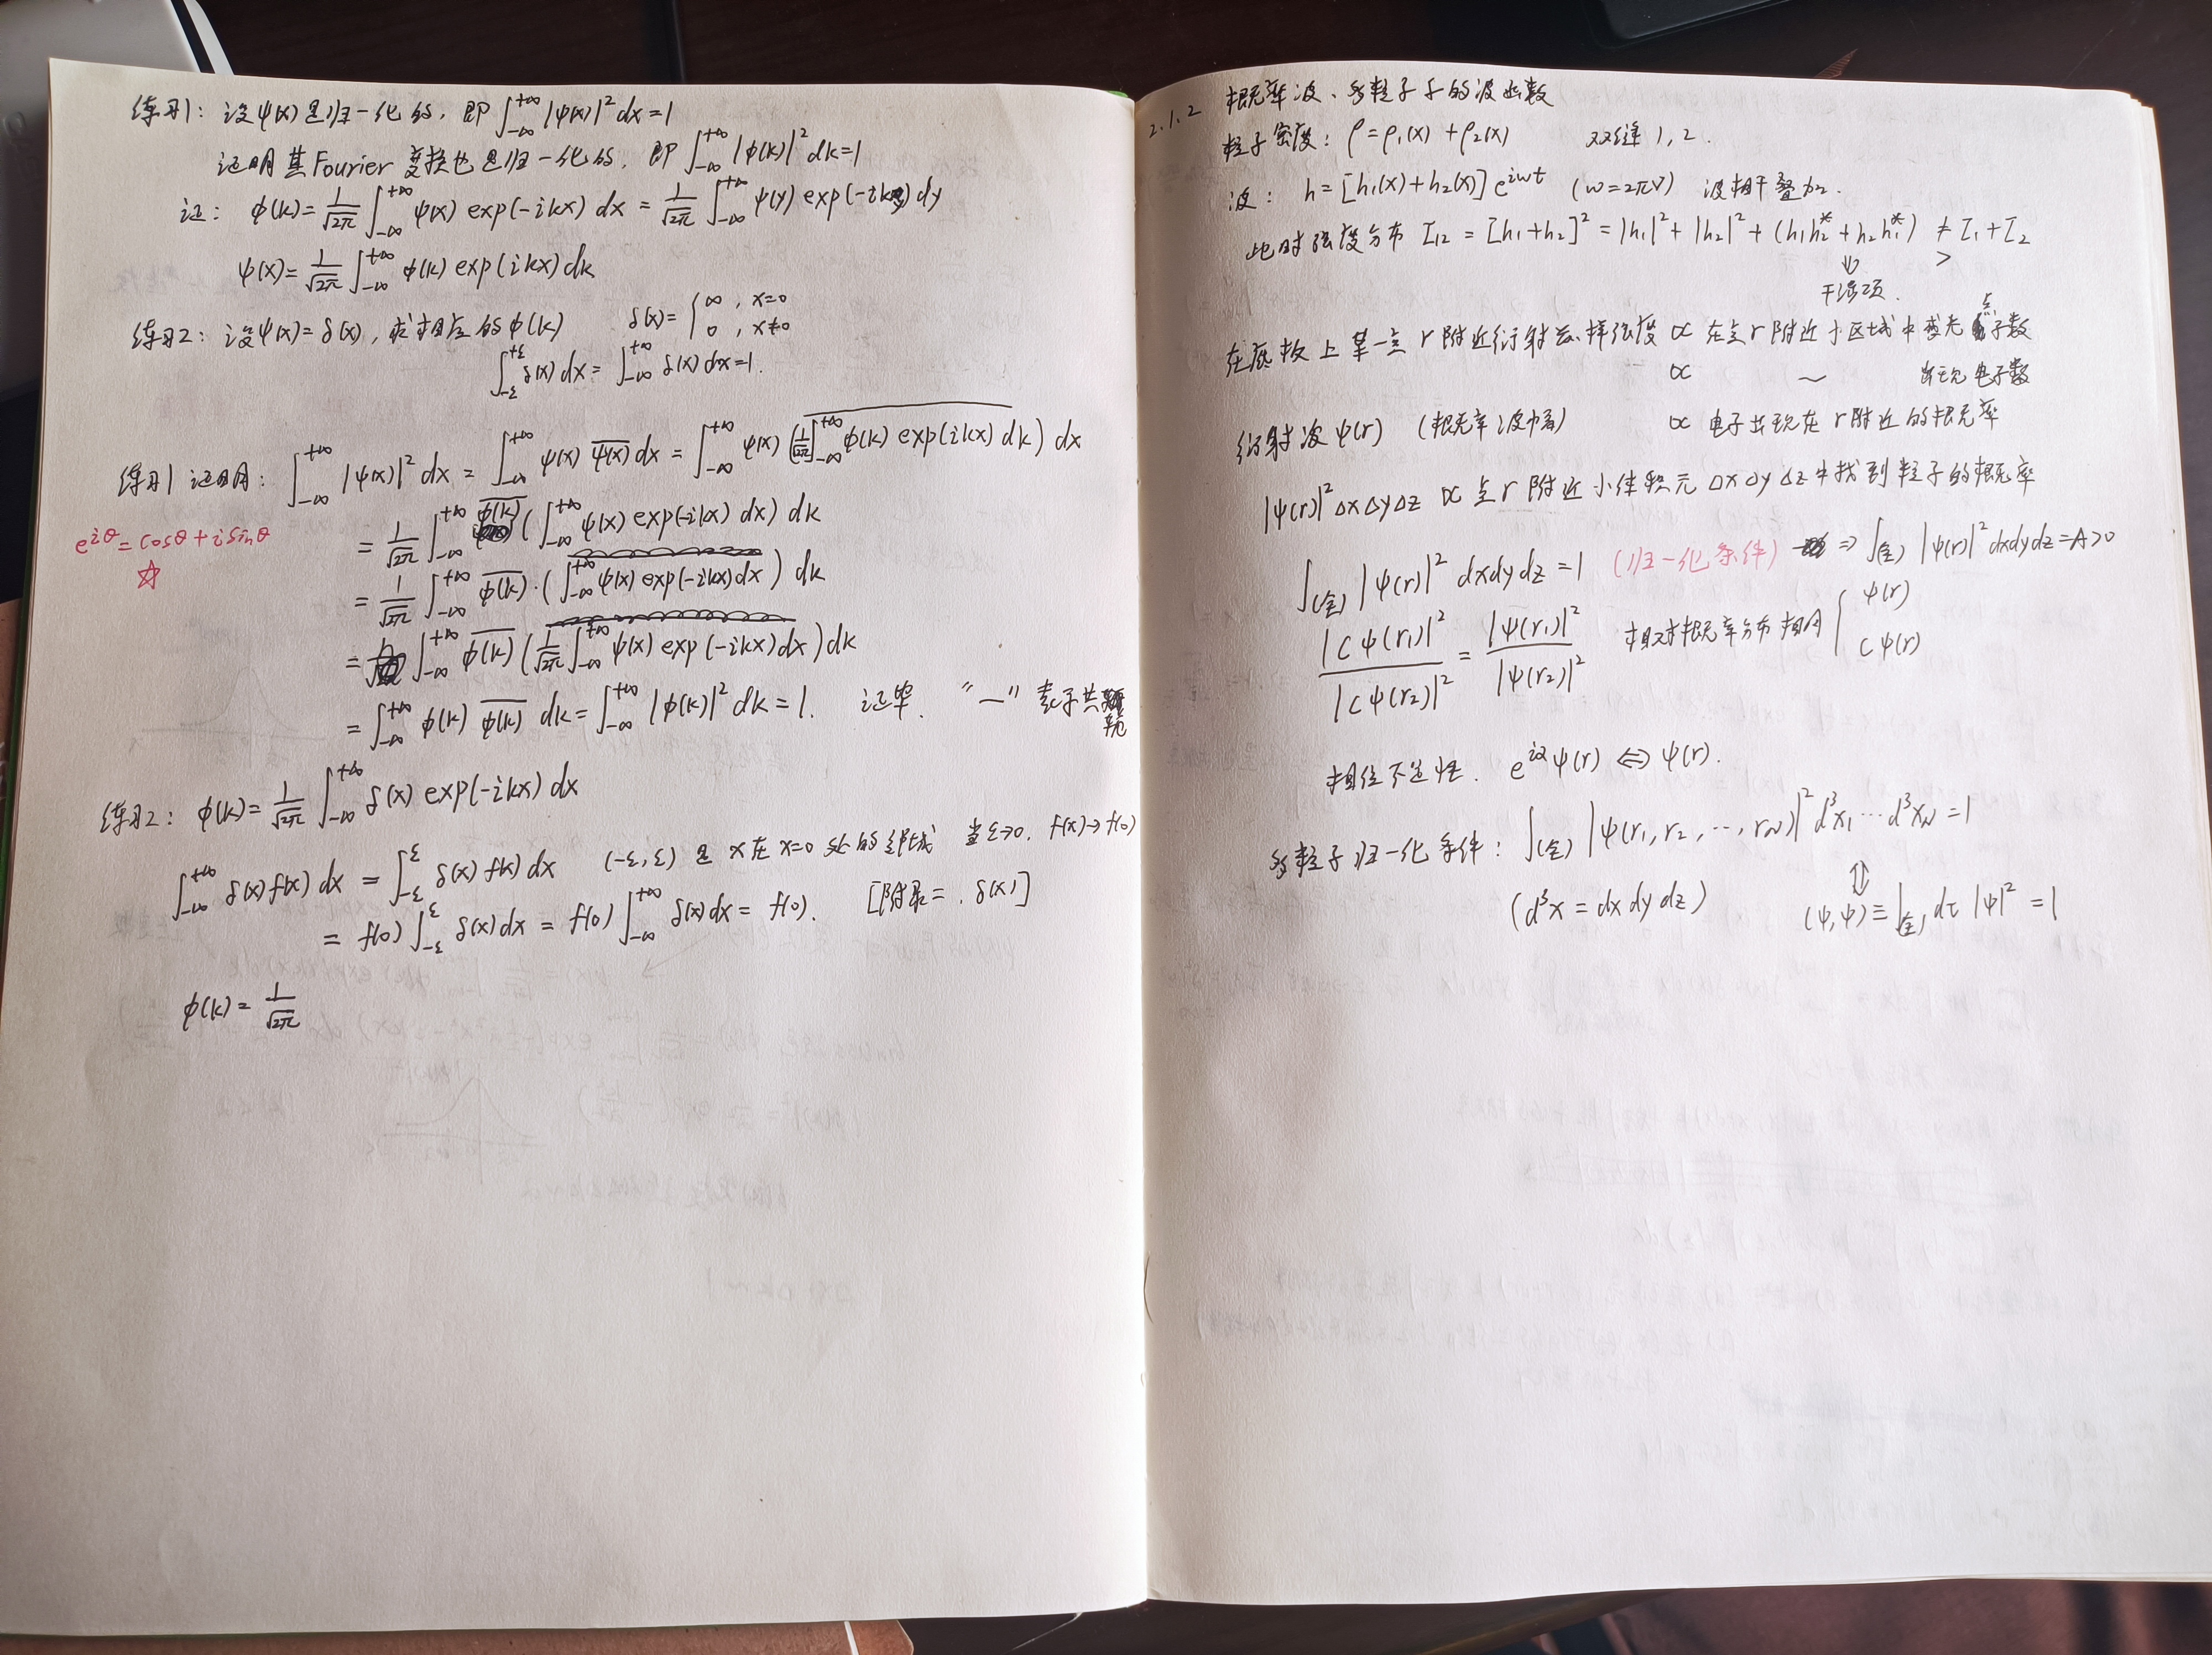 练习1: 设ψ(x)是归一化的, 即 ∫_{-∞}^{+∞} |ψ(x)|² dx = 1
证明其Fourier变换也是归一化的, 即 ∫_{-∞}^{+∞} |φ(k)|² dk = 1
证: φ(k) = 1/√2π ∫_{-∞}^{+∞} ψ(x) exp(-ikx) dx = 1/√2π ∫_{-∞}^{+∞} ψ(y) exp(-iky) dy
ψ(x) = 1/√2π ∫_{-∞}^{+∞} φ(k) exp(ikx) dk
练习2: 设ψ(x) = δ(x), 求相应的φ(k) δ(x) = { ∞, x=0
0, x≠0
∫_{-ε}^{+ε} δ(x) dx = ∫_{-∞}^{+∞} δ(x) dx = 1.
练习1证明: ∫_{-∞}^{+∞} |ψ(x)|² dx = ∫_{-∞}^{+∞} ψ(x) \overline{ψ(x)} dx = ∫_{-∞}^{+∞} ψ(x) \overline{(1/√2π ∫_{-∞}^{+∞} φ(k) exp(ikx) dk)} dx
e^{iθ} = cosθ + i sinθ
☆
= 1/√2π ∫_{-∞}^{+∞} \overline{φ(k)} (∫_{-∞}^{+∞} ψ(x) exp(-ikx) dx) dk
= 1/√2π ∫_{-∞}^{+∞} \overline{φ(k)} · (∫_{-∞}^{+∞} ψ(x) exp(-ikx) dx) dk
= ∫_{-∞}^{+∞} \overline{φ(k)} (1/√2π ∫_{-∞}^{+∞} ψ(x) exp(-ikx) dx) dk
= ∫_{-∞}^{+∞} φ(k) \overline{φ(k)} dk = ∫_{-∞}^{+∞} |φ(k)|² dk = 1. 证毕. "—" 表示共轭
练习2: φ(k) = 1/√2π ∫_{-∞}^{+∞} δ(x) exp(-ikx) dx
∫_{-∞}^{+∞} δ(x) f(x) dx = ∫_{-ε}^{ε} δ(x) f(x) dx (-ε, ε) 是 x在x=0处的邻域 当ε→0. f(x)→f(0)
= f(0) ∫_{-ε}^{ε} δ(x) dx = f(0) ∫_{-∞}^{+∞} δ(x) dx = f(0). [附录二. δ(x)]
φ(k) = 1/√2π
2.1.2 概率波、多粒子子的波函数
粒子密度: ρ = ρ₁(x) + ρ₂(x) 双缝1, 2.
波: h = [h₁(x) + h₂(x)] e^{iωt} (ω = 2πν) 波相干叠加.
此时强度分布 I₁₂ = [h₁+h₂]² = |h₁|² + |h₂|² + (h₁h₂* + h₂h₁*) ≠ I₁ + I₂
⇓ >
干涉项.
在底板上某一点r附近衍射花样强度 ∝ 在点r附近小区域中感光点子数
∝ ~ 电子数
衍射波ψ(r) (概率波幅) ∝ 电子出现在r附近的概率
|ψ(r)|² ΔxΔyΔz ∝ 点r附近小体积元ΔxΔyΔz中找到粒子的概率
∫_{(全)} |ψ(r)|² dxdydz = 1 (归一化条件) ⇒ ∫_{(全)} |ψ(r)|² dxdydz = A > 0
|Cψ(r₁)|² / |Cψ(r₂)|² = |ψ(r₁)|² / |ψ(r₂)|² 相对概率分布相同 { ψ(r)
Cψ(r)
相位不定性. e^{iα}ψ(r) ⇔ ψ(r).
多粒子归一化条件: ∫_{(全)} |ψ(r₁, r₂, ⋯, r_N)|² d³x₁ ⋯ d³x_N = 1
⇕
(d³x = dxdydz) (ψ, ψ) ≡ ∫_{(全)} dτ |ψ|² = 1